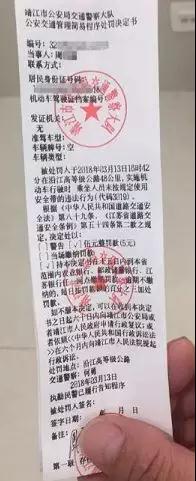 靖江市公安局交通警察大队
公安交通管理简易程序处罚决定书
编号:32
当事人:
联系方式:
居民身份证号码:
机动车驾驶证档案编号:
发证机关:
准驾车型:
车辆牌号:空
车辆类型:
被处罚人于2018年03月13日15时42
分在沿江高等级公路48公里,实施机
动车行驶时,乘坐人员未按规定使用安
全带的违法行为(代码3019)
根据《中华人民共和国道路交通安全
法》第八十九条、《江苏省道路交通
安全条例》第五十四条第二款之规
定,决定处以:
[ ]警告 [√]伍元整罚款(5元)
[ ]当场缴纳罚款
[√]持本决定书在十五日内到
如不服本决定,可以在收到本决定
书之日起六十日内向靖江市公安局
或靖江市人民政府申请行政复议;或
者依照《中华人民共和国行政诉讼法
》在六个月内向靖江市人民法院提起
行政诉讼。
处罚地点:沿江高等级公路
交通警察:何勇
2018年03月13日
执勤民警已履行告知程序
被处罚人签名:
签字日期: 年 月 日
备注: